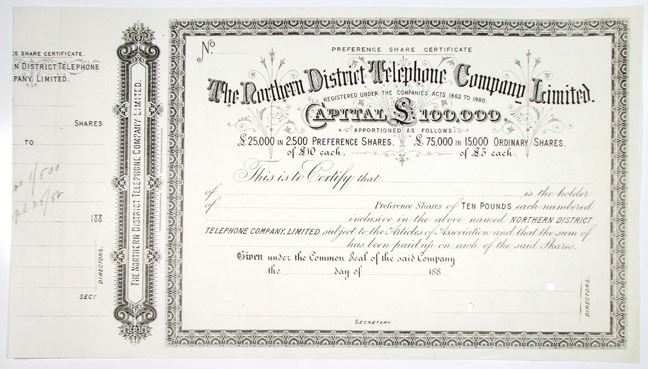 CE SHARE CERTIFICATE.
N DISTRICT TELEPHONE
PANY LIMITED.
SHARES
TO
1/500
188
DIRECTORS.
SECY
THE NORTHERN DISTRICT TELEPHONE COMPANY LIMITED.
No
PREFERENCE SHARE CERTIFICATE
The Northern District Telephone Company Limited.
REGISTERED UNDER THE COMPANIES' ACTS 1862 TO 1880.
CAPITAL £100,000.
APPORTIONED AS FOLLOWS
£25,000 IN 2,500 PREFERENCE SHARES, £75,000 IN 15,000 ORDINARY SHARES
of £10 each. of £5 each.
This is to Certify that
of is the holder
of Preference Shares of TEN POUNDS each numbered
inclusive in the above named NORTHERN DISTRICT
TELEPHONE COMPANY, LIMITED subject to the Articles of Association and that the sum of
has been paid up on each of the said Shares.
Given under the Common Seal of the said Company
the day of 188
DIRECTORS.
SECRETARY.